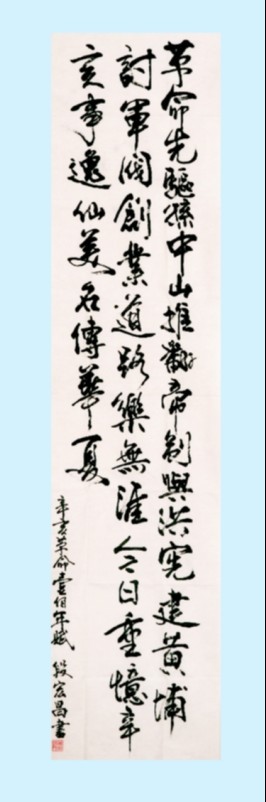 革命先驅孫中山推翻帝制與洪憲建黃埔
討軍閥創業道路樂無涯今日重憶辛
亥事逸仙美名傳華夏
辛亥革命壹佰年賦 段宏昌書